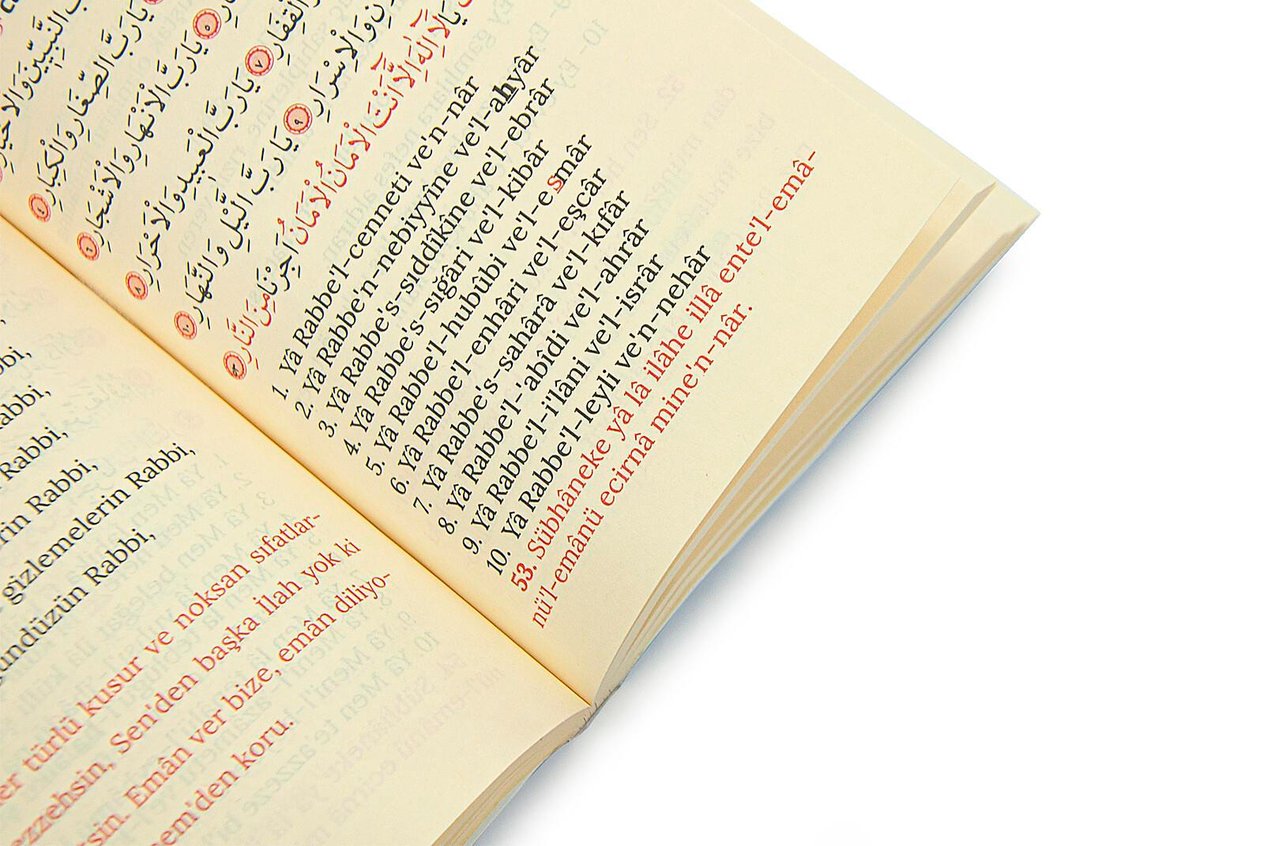 Rabbi,
Rabbi,
Rabbi,
gizlemelerin Rabbi,
Rabbi,
türlü kusur ve noksan sıfatlar-
Sen'den başka İlah yok ki
Emân ver bize, emân diliyo-
koru.
النَّبِيِّينَ وَالْاَخْيَارِ
يَارَبَّ الصِّغَارِ وَالْكِبَارِ ٤
٥ يَارَبَّ الْاَنْهَارِ وَالْاَشْجَارِ ٦
الْقِفَارِ ٧ يَارَبَّ الْعَبِيدِ وَالْاَحْرَارِ ٨
وَالْاِسْرَارِ ٩ يَارَبَّ الَّيْلِ وَالنَّهَارِ ١٠
يَالَآ اِلٰهَ اِلَّآ اَنْتَ الْاَمَانُ الْاَمَانُ اَجِرْنَا مِنَ النَّارِ
1. Yâ Rabbe'l-cenneti ve'n-nâr
2. Yâ Rabbe'n-nebiyyîne ve'l-ahyâr
3. Yâ Rabbe's-sıddîkîne ve'l-ebrâr
4. Yâ Rabbe's-sığâri ve'l-kibâr
5. Yâ Rabbe'l-hubûbi ve'l-esmâr
6. Yâ Rabbe'l-enhâri ve'l-eşcâr
7. Yâ Rabbe's-sahârâ ve'l-kıfâr
8. Yâ Rabbe'l-'abîdi ve'l-ahrâr
9. Yâ Rabbe'l-i'lâni ve'l-isrâr
10. Yâ Rabbe'l-leyli ve'n-nehâr
53. Sübhâneke yâ lâ ilâhe illâ ente'l-emâ-
nü'l-emânü ecirnâ mine'n-nâr.